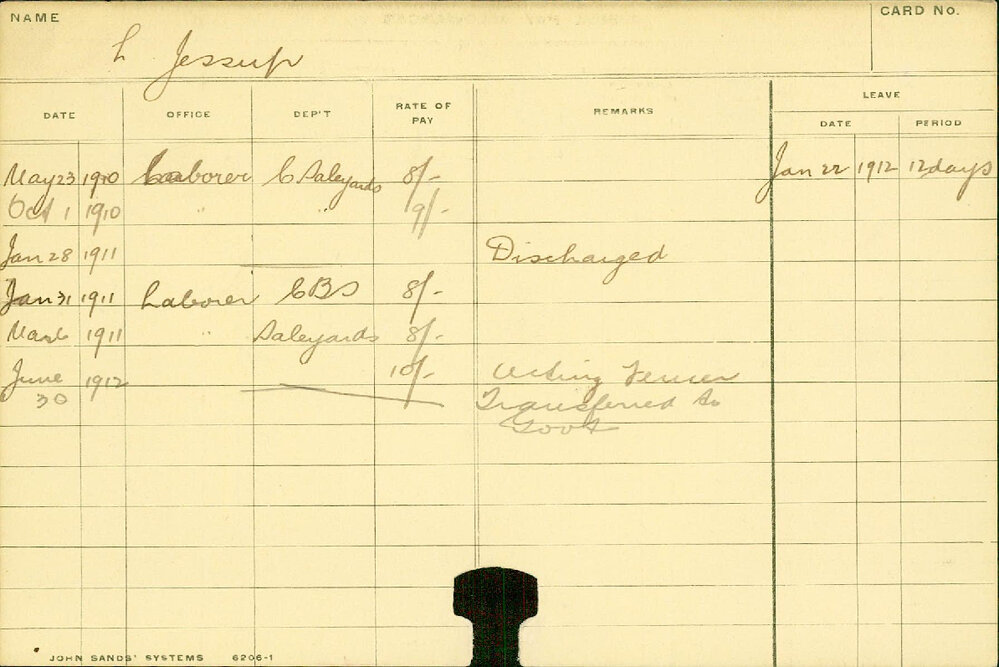 NAME
CARD NO.
L Jessup
DATE OFFICE DEP'T RATE OF PAY REMARKS LEAVE
DATE PERIOD
May 23 1910 Laborer C Saleyards 8/- Jan 22 1912 12 days
Oct 1 1910 " " 9/-
Jan 28 1911 Discharged
Jan 31 1911 Laborer CBS 8/-
Mar 6 1911 " Saleyards 8/-
June 30 1912 10/- Acting Fencer
Transferred to
Govt
JOHN SANDS' SYSTEMS 6206-1